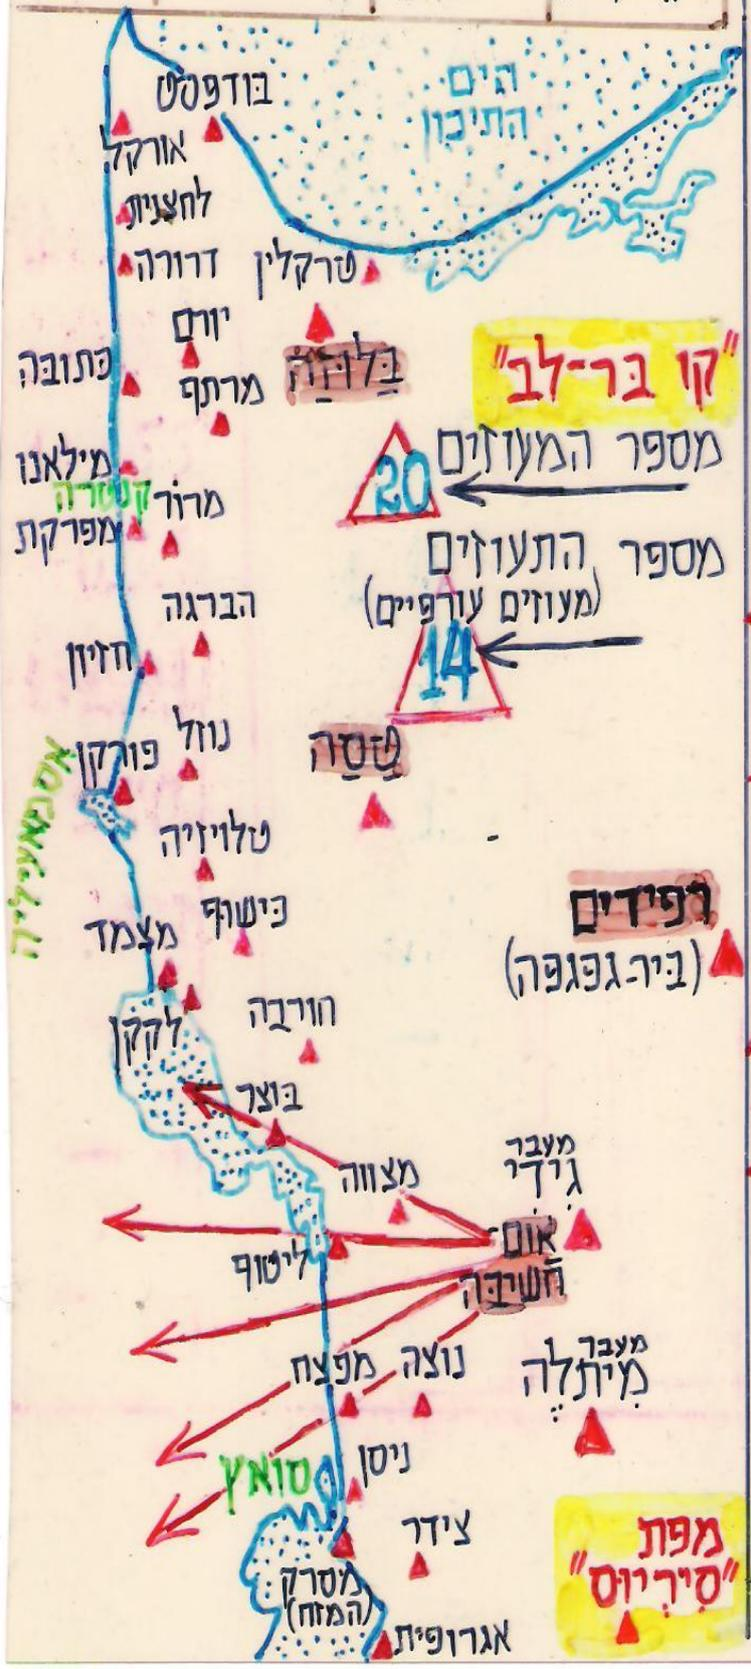 הים
התיכון
בודפסט
אורקל
לחצנית
דרורה
טרקלין
יורם
כתובה
בלוזה
"קו בר-לב"
מרתף
מילאנו
קנטרה
מפרקת
מרור
מספר המעוזים
20
מספר התעוזים
(מעוזים עורפיים)
14
הברגה
חזיון
נוזל
פורקן
טסה
אסמאעיליה
טלויזיה
כישוף
מצמד
רפידים
(ביר-גפגפה)
לקקן
חורבה
בוצר
מצווה
מעבר
גידי
אום
חשיבה
ליטוף
מפצח
נוצה
מעבר
מיתלה
ניסן
סואץ
צידר
מסרק
(המזח)
אגרופית
מפת
"סיריוס"